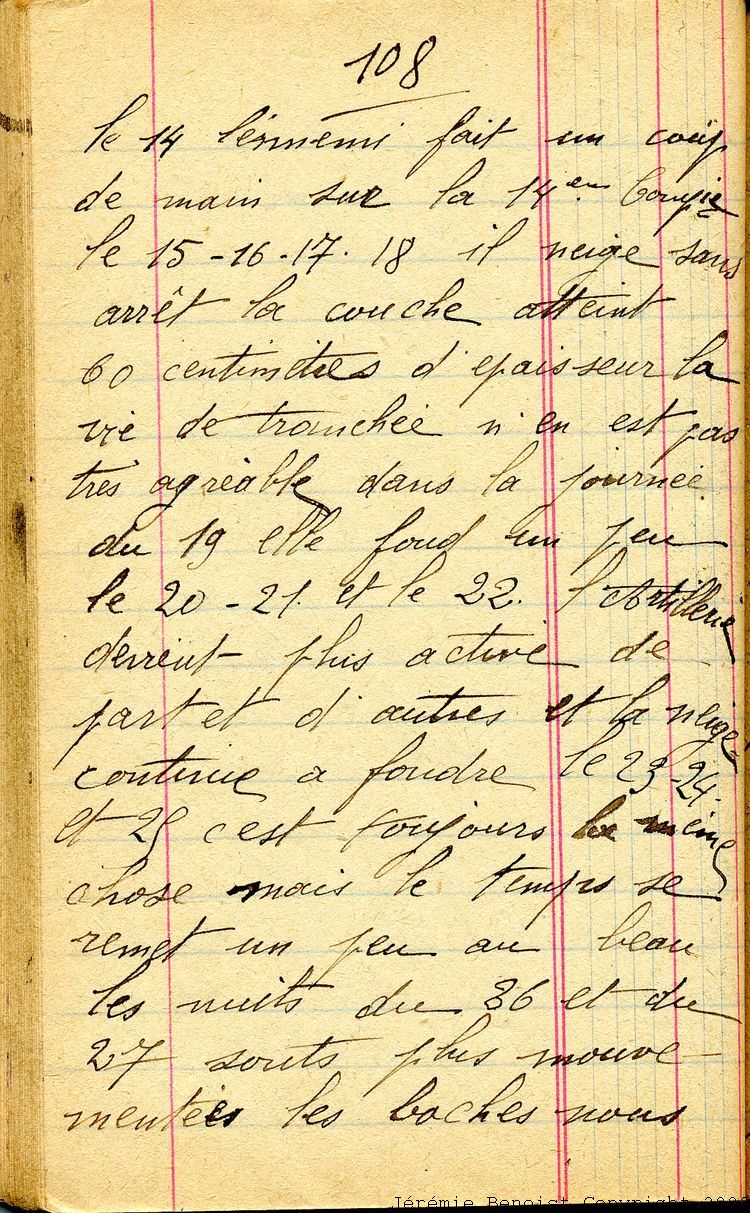 108
le 14 l'énnemi fait un coup
de main sur la 14em Compie
le 15-16-17. 18 il neige sans
arrêt la couche atteint
60 centimètres d'epaisseur la
vie de tranchée n'en est pas
très agréable dans la journée
du 19 elle fond un peu
le 20-21. et le 22. l'Artillerie
devient plus active de
part et d'autres et la neige
continue a fondre le 23-24.
et 25 c'est toujours la même
chose mais le temps se
remet un peu au beau
les nuits du 26 et du
27 sonts plus mouve-
mentées les boches nous
Jérémie Benoist Copyright